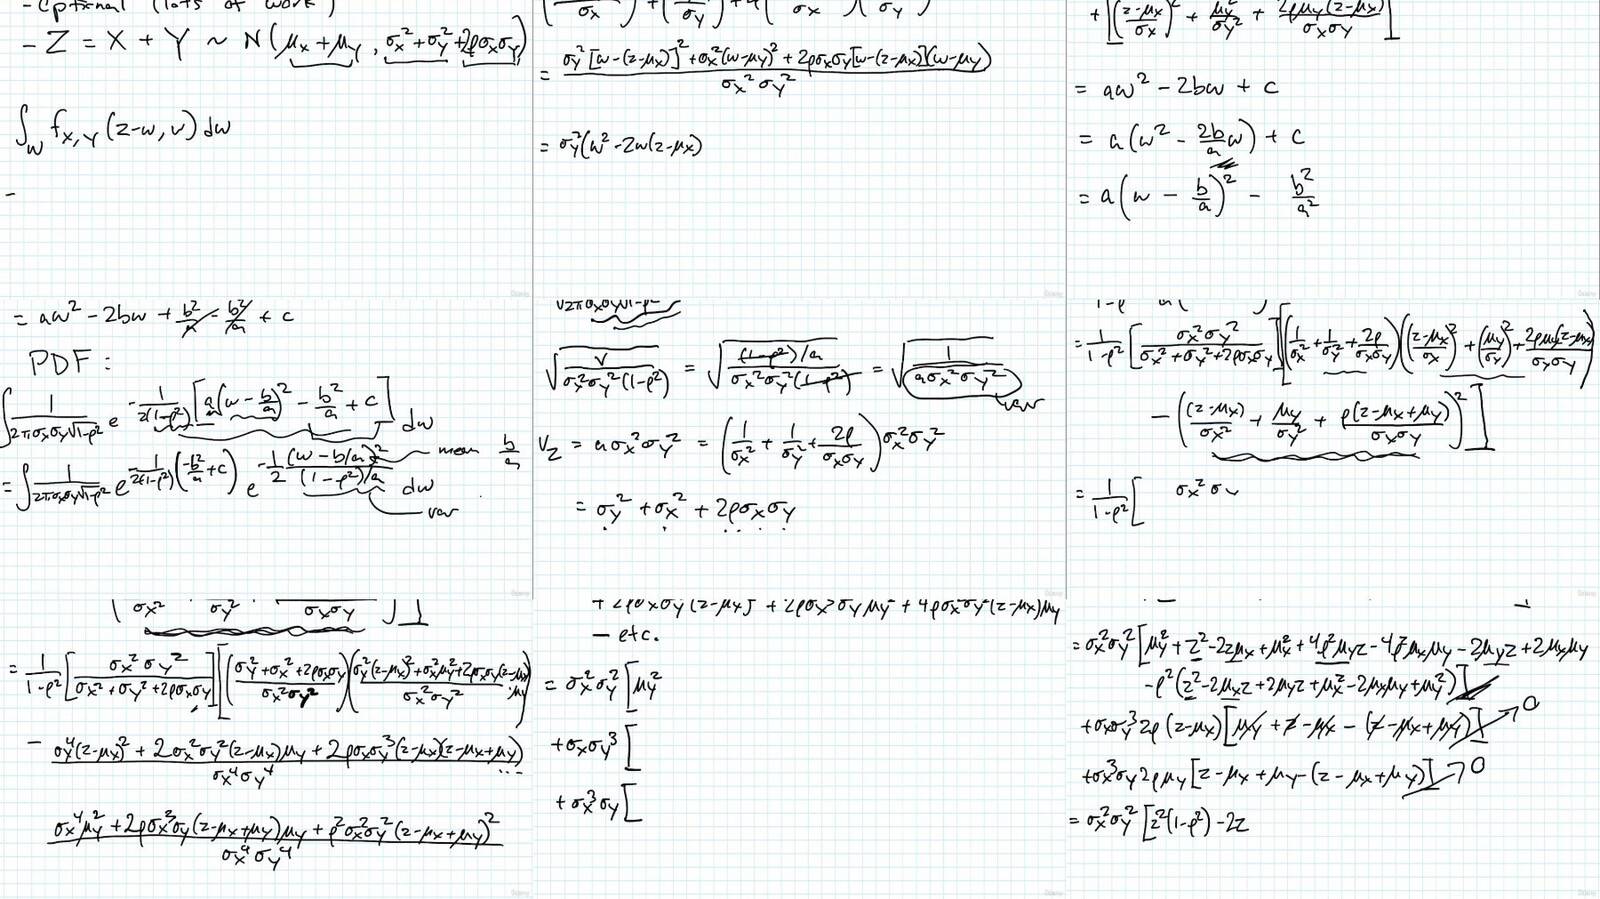 - Optional (lots of work)
- Z = X + Y ~ N(μx + μy, σx² + σy² + 2ρσxσy)
∫w fX,Y(z-w, w) dw
-
= σy²[w-(z-μx)]² + σx²(w-μy)² + 2ρσxσy[w-(z-μx)](w-μy) / σx²σy²
= σy²(w² - 2w(z-μx)
+ [((z-μx)/σx)² + μy²/σy² + 2ρμy(z-μx)/σxσy]
= aw² - 2bw + c
= a(w² - 2b/a w) + c
= a(w - b/a)² - b²/a²
= aw² - 2bw + b²/a - b²/a + c
PDF:
∫ 1/(2πσxσy√(1-ρ²)) e^(-1/(2(1-ρ²)) [a(w - b/a)² - b²/a + c]) dw
= ∫ 1/(2πσxσy√(1-ρ²)) e^(-1/(2(1-ρ²)) (-b²/a + c)) e^(-1/2 (w - b/a)²/((1-ρ²)/a)) dw
mean b/a
var
√2πσxσy√(1-ρ²)
√(v/(σx²σy²(1-ρ²))) = √(((1-ρ²)/a)/(σx²σy²(1-ρ²))) = √(1/(aσx²σy²))
var
Vz = aσx²σy² = (1/σx² + 1/σy² + 2ρ/σxσy)σx²σy²
= σy² + σx² + 2ρσxσy
= 1/(1-ρ²) [σx²σy²/(σx² + σy² + 2ρσxσy)] [(1/σx² + 1/σy² + 2ρ/σxσy)(((z-μx)/σx)² + (μy/σy)² + 2ρμy(z-μx)/σxσy)
- ((z-μx)/σx² + μy/σy² + ρ(z-μx+μy)/σxσy)²]
= 1/(1-ρ²) [ σx² σy
σx² σy² σxσy
= 1/(1-ρ²) [σx²σy²/(σx² + σy² + 2ρσxσy)] [((σy² + σx² + 2ρσxσy)/σx²σy²)((σy²(z-μx)² + σx²μy² + 2ρσxσy(z-μx)μy)/σx²σy²)
- σy⁴(z-μx)² + 2σx²σy²(z-μx)μy + 2ρσxσy³(z-μx)(z-μx+μy) ... / σx⁴σy⁴
σx⁴μy² + 2ρσx³σy(z-μx+μy)μy + ρ²σx²σy²(z-μx+μy)² / σx⁴σy⁴
+ 2ρσxσy³(z-μx)² + 2ρσx³σyμy² + 4ρσx²σy²(z-μx)μy
- etc.
= σx²σy²[μy²
+ σxσy³[
+ σx³σy[
= σx²σy²[μy² + z² - 2zμx + μx² + 4ρ²μyz - 4ρ²μxμy - 2μyz + 2μxμy
- ρ²(z² - 2μxz + 2μyz + μx² - 2μxμy + μy²)]
+ σxσy³2ρ(z-μx)[μy + z - μx - (z - μx + μy)] → 0
+ σx³σy2ρμy[z - μx + μy - (z - μx + μy)] → 0
= σx²σy²[z²(1-ρ²) - 2z